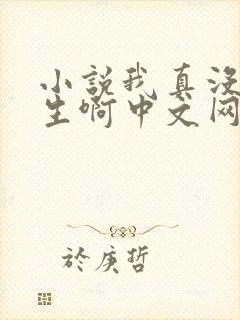 小說我真沒
生啊中文网
於庚哲